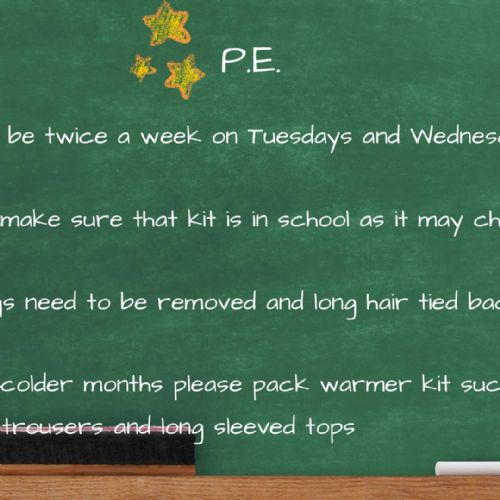 P.E.
be twice a week on Tuesdays and
make sure that kit is in school as it may
need to be removed and long hair tied
colder months please pack warmer kit
trousers and long sleeved tops